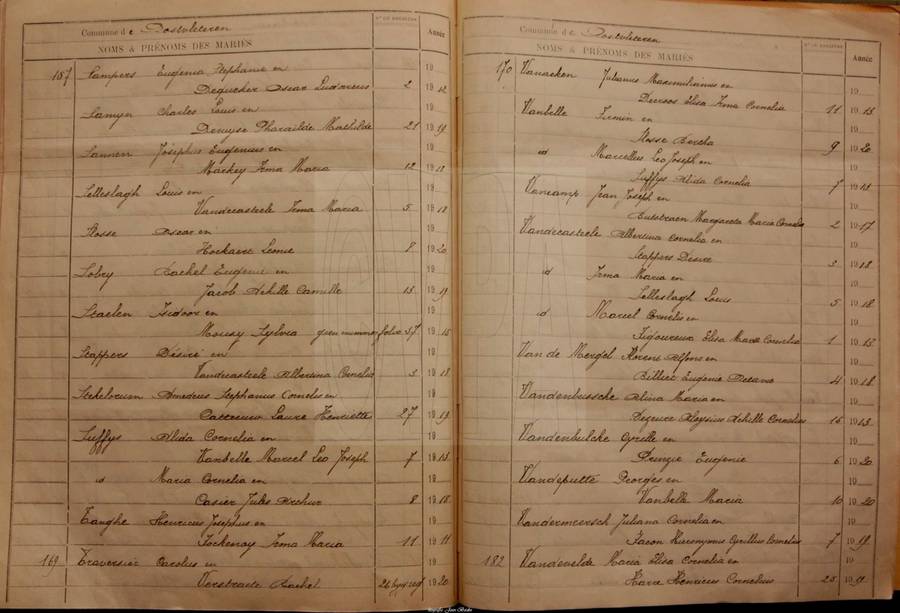 Commune de Oostvleteren
Nº DU REGISTRE
Année
NOMS & PRÉNOMS DES MARIÉS
157 Lampers Eugenia Stephanie en 19
Dequeker Oscar Ludovicus 2 1912
Lamyn Charles Louis en 19
Denyse Pharailde Mathilde 21 1919
Lannen Josephus Eugenius en 19
Markey Irma Maria 12 1912
Lelleslagh Louis en 19
Vandecasteele Irma Maria 5 1918
Rosse Oscar en 19
Leonie 8 1920
Sobry Rachel Eugenie en 19
Jacob Achille Camille 15 1919
Staelen Isidoor en 19
Sylvia geen nummer folio 57 1915
Stappers Désiré en 19
Vandecasteele Albertina Cornelia 3 1918
Amedeus Stephanus Cornelius en 19
Laure Henriette 27 1919
Suffys Alida Cornelia en 19
Vanbelle Marcel Leo Joseph 7 1913
id Maria Cornelia en 19
Casier Jules Arthur 8 1918
Tanghe Henricus Josephus en 19
Irma Maria 11 1911
169 Traversier Carolus en 19
Verstraete Rachel 1920
Commune de Oostvleteren
Nº DU REGISTRE
Année
NOMS & PRÉNOMS DES MARIÉS
170 Vanacken Julianus Maximilianus en 19
Elisa Irma Cornelia 11 1913
Vanbelle Firmin en 19
Rosse Bertha 9 1920
id Marcellus Leo Joseph en 19
Suffys Alida Cornelia 7 1913
Vancamp Jean Joseph en 19
Margareta Maria Cornelia 2 1917
Vandecasteele Albertina Cornelia en 19
Stappers Désiré 3 1918
id Irma Maria en 19
Lelleslagh Louis 5 1918
id Marcel Cornelis en 19
Elisa Maria Cornelia 1 1913
Van de Mergel Alfons en 19
Billiet Eugenie Octavie 4 1918
Vandenbussche Alina Maria en 19
Dezeure Aloysius Achille Cornelius 15 1913
Vandenbulcke Cyrille en 19
Eugenie 6 1920
Vandeputte Georges en 19
Vanbelle Maria 10 1920
Vandermeersch Juliana Cornelia en 19
Facon Hieronymus Cyrillus Cornelius 7 1919
182 Vandevelde Maria Elisa Cornelia en 19
Henricus Cornelius 25 1911